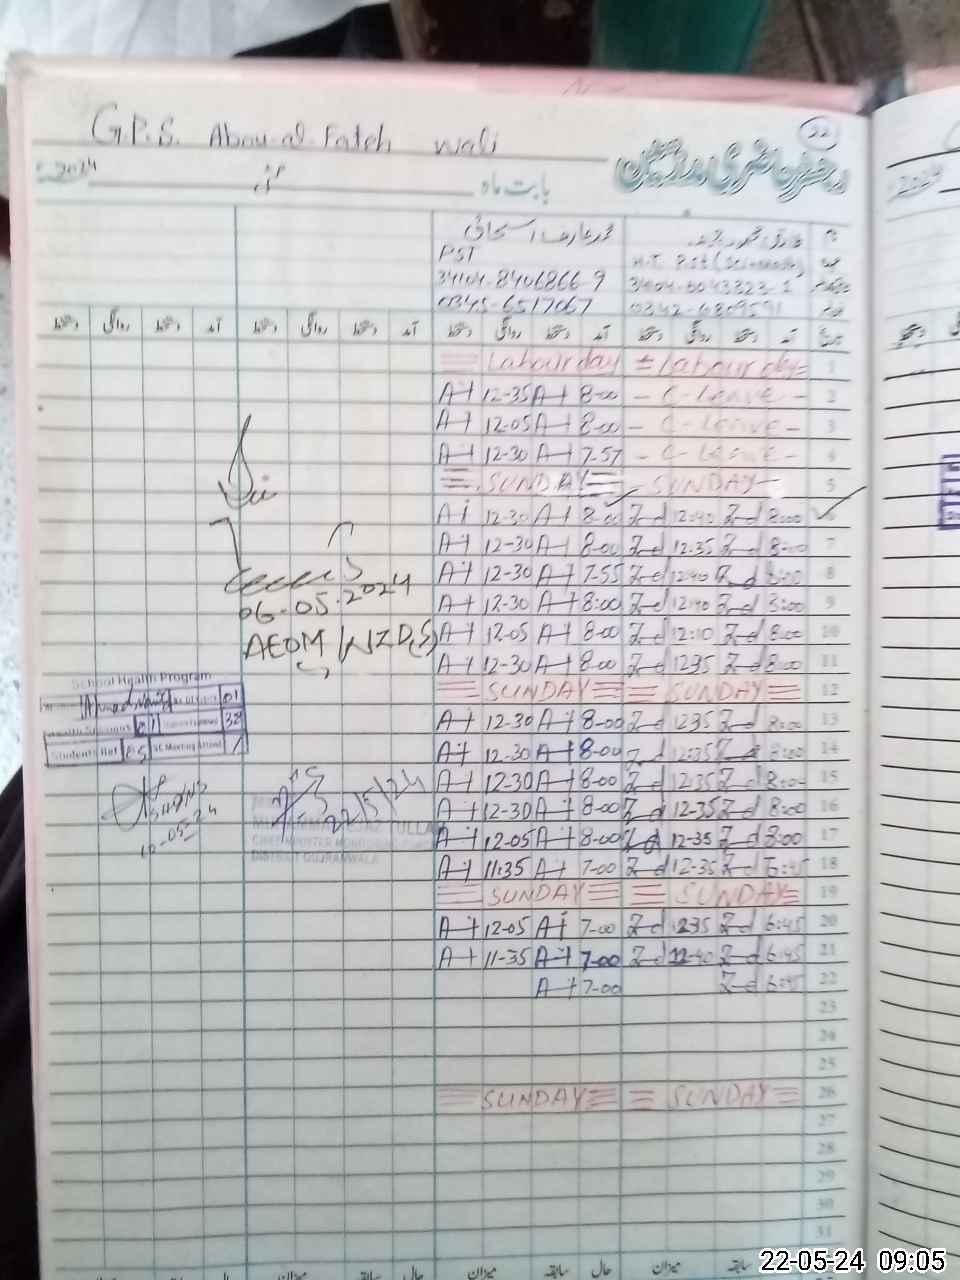 22
G.P.S. Abou-al-Fateh wali
رجسٹر حاضری مدرسین
بابت ماہ مئی 2024
محمد عارف اسحاق
PST H.T. P.st
34104-8406866-9 34104-6043323-1
0345-6517067 0342-6809591
دستخط روانگی دستخط آمد دستخط روانگی دستخط آمد دستخط روانگی دستخط آمد دستخط روانگی دستخط آمد تاریخ
Labour day = Labour day = 1
A-t 12-35 A-t 8-00 - C-Leave - 2
A-t 12-05 A-t 8-00 - C-Leave - 3
A-t 12-30 A-t 7-57 - C-Leave - 4
SUNDAY - SUNDAY - 5
A-t 12-30 A-t 8-00 Z-d 12:40 Z-d 8:00 6
A-t 12-30 A-t 8-00 Z-d 12:35 Z-d 8:00 7
A-t 12-30 A-t 7-55 Z-d 12:40 Z-d 8:00 8
A-t 12-30 A-t 8:00 Z-d 12:40 Z-d 8:00 9
A-t 12-05 A-t 8-00 Z-d 12:10 Z-d 8:00 10
A-t 12-30 A-t 8-00 Z-d 1235 Z-d 8:00 11
SUNDAY SUNDAY 12
A-t 12-30 A-t 8-00 Z-d 1235 Z-d 8:00 13
A-t 12-30 A-t 8-00 Z-d 12:35 Z-d 8:00 14
A-t 12-30 A-t 8-00 Z-d 12:35 Z-d 8:00 15
A-t 12-30 A-t 8-00 Z-d 12-35 Z-d 8:00 16
A-t 12-05 A-t 8-00 Z-d 12-35 Z-d 8:00 17
A-t 11:35 A-t 7-00 Z-d 12-35 Z-d 6:45 18
SUNDAY SUNDAY 19
A-t 12-05 A-t 7-00 Z-d 1235 Z-d 6:45 20
A-t 11-35 A-t 7-00 Z-d 12-40 Z-d 6:45 21
A-t 7-00 Z-d 6:45 22
23
24
25
SUNDAY SUNDAY 26
27
28
29
30
31
میزان سابقہ حال میزان سابقہ حال میزان سابقہ حال میزان
06-05-2024
AEOM/WZD(S)
School Health Program
Ahmad 01
01 38
Students Ref 05 SC Meeting Attend 1
SH&NS
10-05-24
22/5/24
MUHAMMAD
DISTRICT GUJRANWALA
22-05-24 09:05